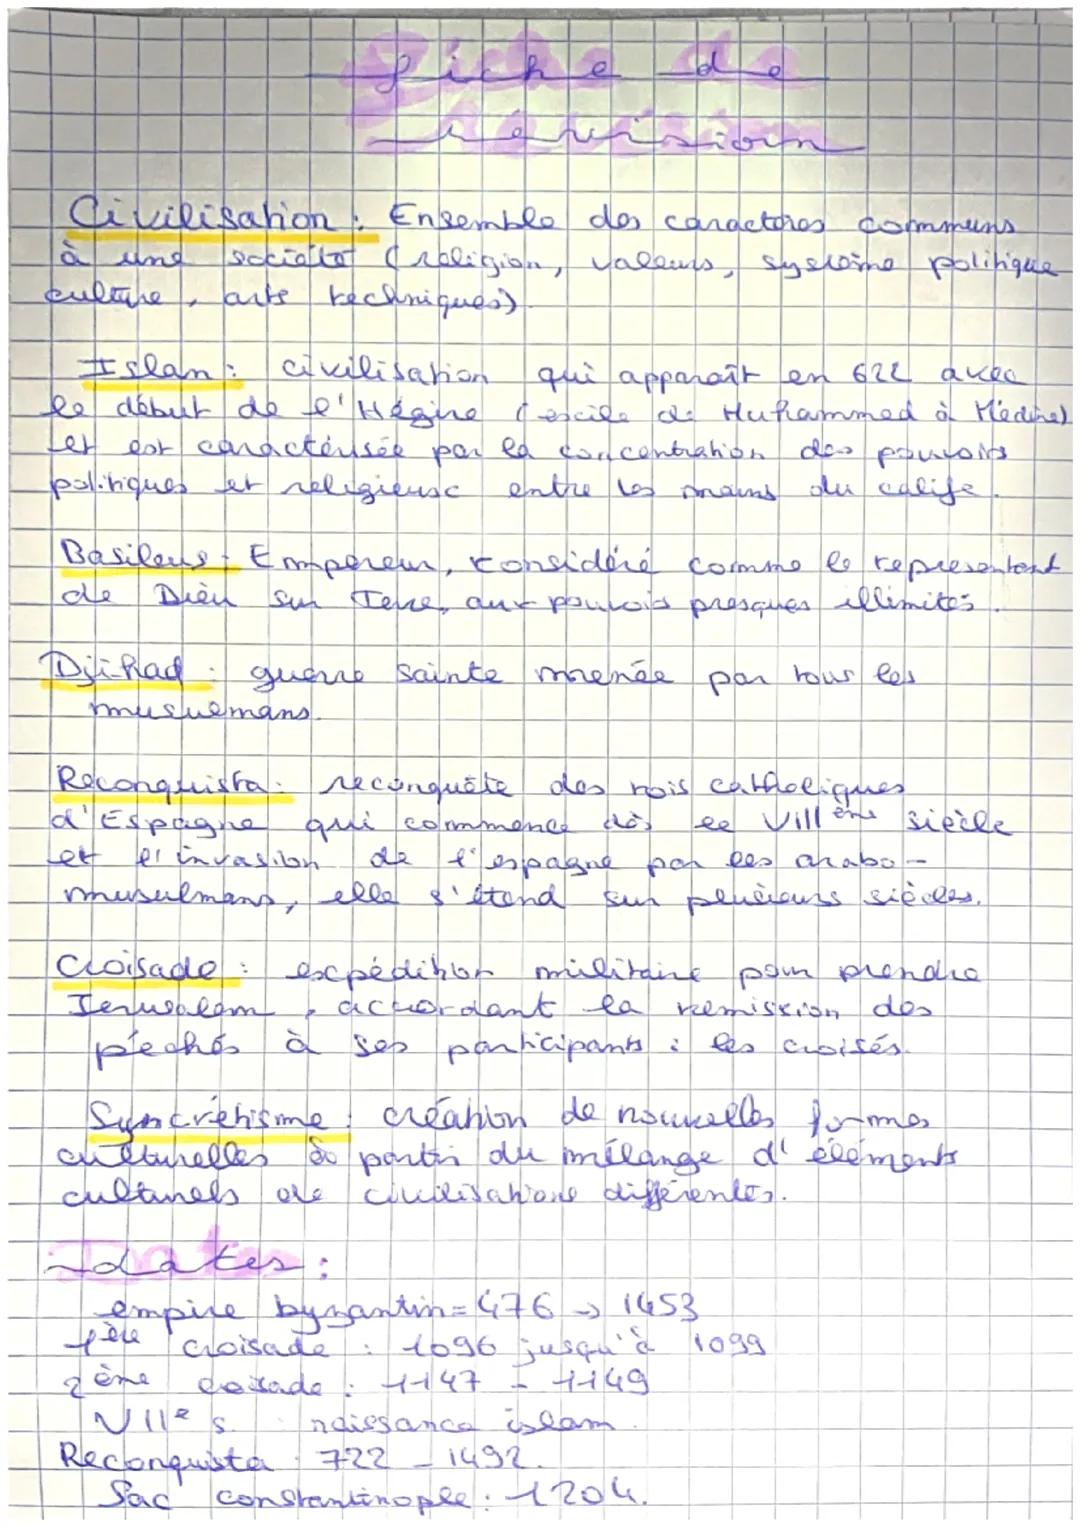 fiche de
révision
Civilisation : Ensemble des caractères communs
à une société (religion, valeurs, système politique
culture, arts techniques).
Islam : civilisation qui apparaît en 622 avec
le début de l'Hégire (exile de Muhammed à Médine)
et est caractérisée par la concentration des pouvoirs
politiques et religieux entre les mains du calife.
Basileus : Empereur, considéré comme le représentant
de Dieu sur Terre, aux pouvoirs presques illimités.
Djihad : guerre sainte menée par tous les
musulmans.
Reconquista : reconquête des rois catholiques
d'Espagne qui commence dès le VIIIème siècle
et l'invasion de l'espagne par les arabo-
musulmans, elle s'étend sur plusieurs siècles.
Croisade : expédition militaire pour prendre
Jerusalem, accordant la remission des
péchés à ses participants : les croisés.
Syncrétisme : création de nouvelles formes
culturelles à partir du mélange d'éléments
culturels de civilisations différentes.
dates :
empire byzantin = 476 → 1453
1ère croisade : 1096 jusqu'à 1099
2ème croisade : 1147 - 1149
VIIe s. naissance islam.
Reconquista : 722 - 1492.
Sac constantinople : 1204.